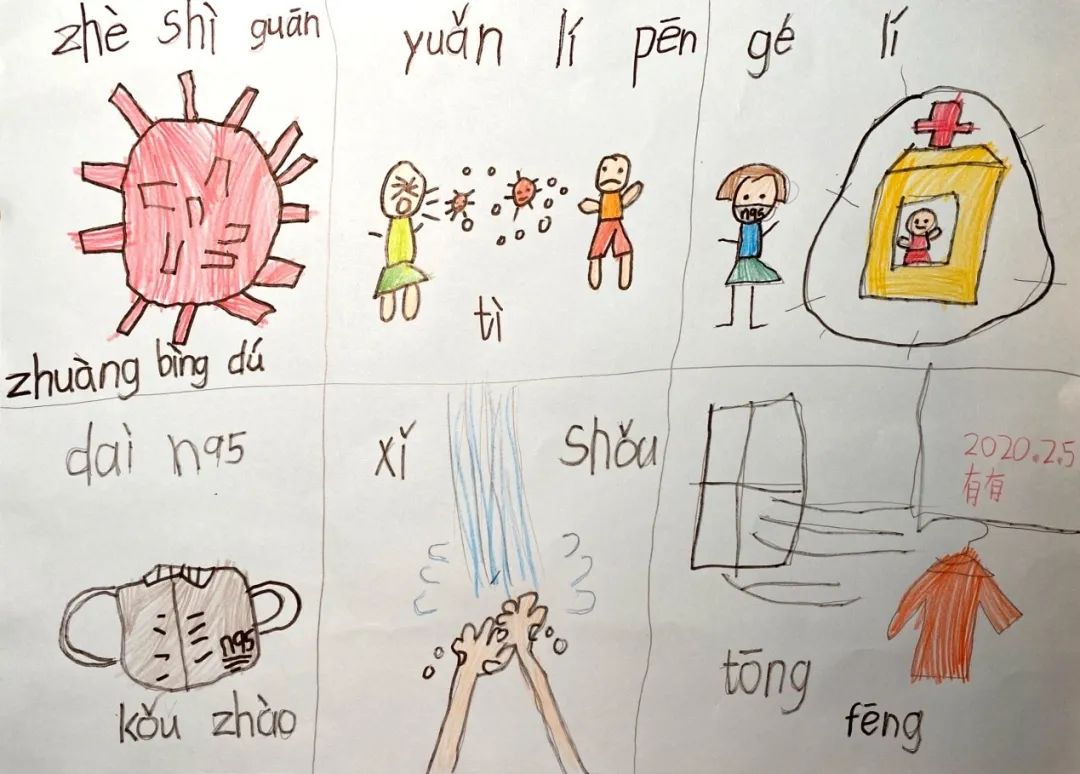 zhè shì guān
zhuàng bìng dú
yuǎn lí pēn
tì
gé lí
n95
dài n95
n95
kǒu zhào
xǐ shǒu
2020.2.5
有有
tōng
fēng